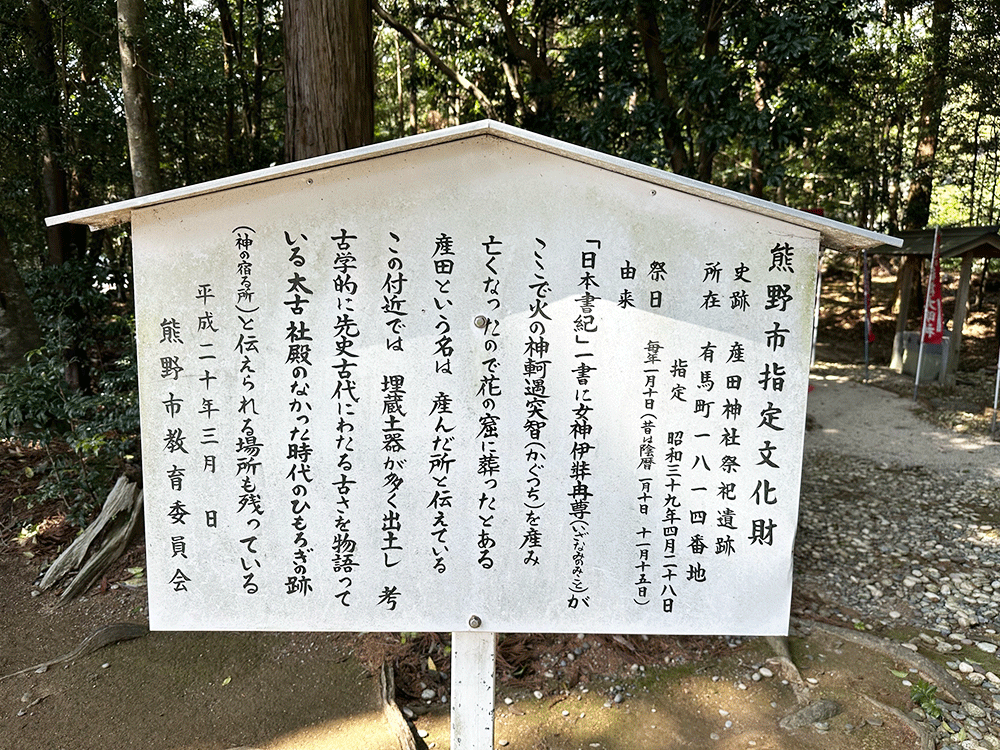 熊野市指定文化財
史跡　産田神社祭祀遺跡
所在　有馬町一八一四番地
指定　昭和三十九年四月二十八日
祭日　毎年一月十日（昔は陰暦一月十日　十一月十五日）
由来
「日本書紀」一書に女神伊弉冉尊（いざなみのみこと）が
ここで火の神軻遇突智（かぐつち）を産み
亡くなったので花の窟に葬ったとある
産田という名は　産んだ所と伝えている
この付近では　埋蔵土器が多く出土し　考
古学的に先史古代にわたる古さを物語って
いる太古社殿のなかった時代のひもろぎの跡
（神の宿る所）と伝えられる場所も残っている
平成二十年三月　日
熊野市教育委員会